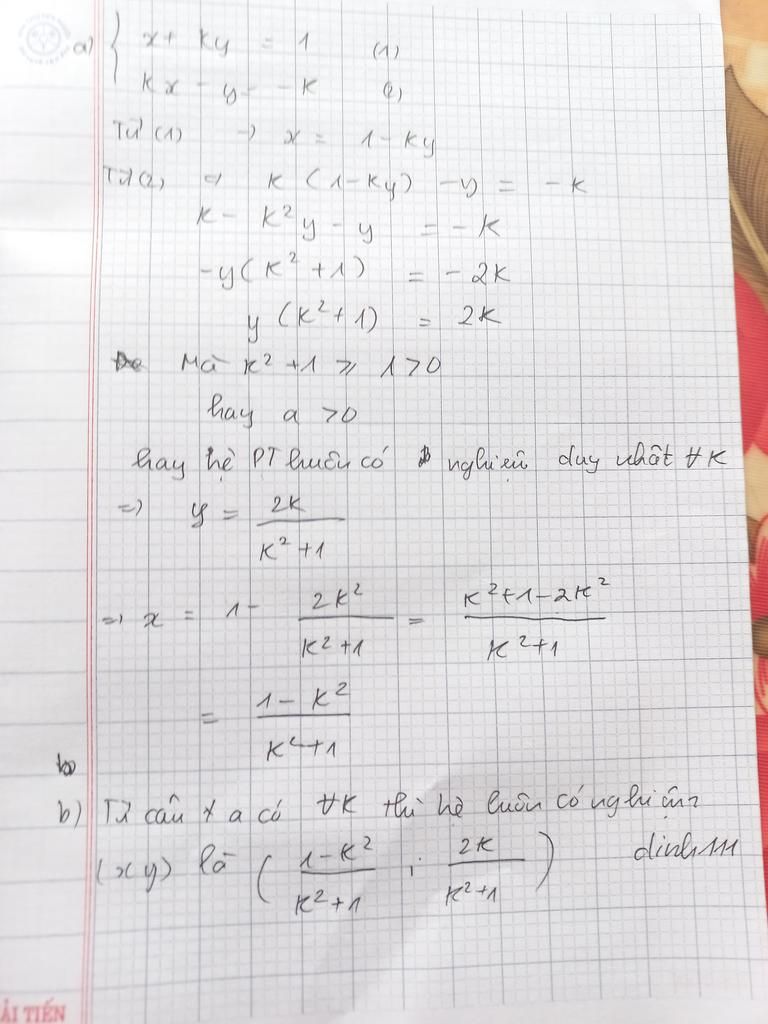 a) { x + ky = 1 (1)
kx - y = -k (2)
Từ (1) → x = 1 - ky
Từ (2) ⇒ k (1 - ky) - y = - k
k - k²y - y = - k
-y(k² + 1) = - 2k
y (k² + 1) = 2k
Mà k² + 1 ⩾ 1 > 0
hay a > 0
hay hệ PT luôn có nghiệm duy nhất ∀k
=> y = 2k / (k² + 1)
=> x = 1 - 2k² / (k² + 1) = (k² + 1 - 2k²) / (k² + 1)
= (1 - k²) / (k² + 1)
b) Từ câu a có ∀k thì hệ luôn có nghiệm
(x y) là ( (1 - k²) / (k² + 1) ; 2k / (k² + 1) )
ẢI TIẾN